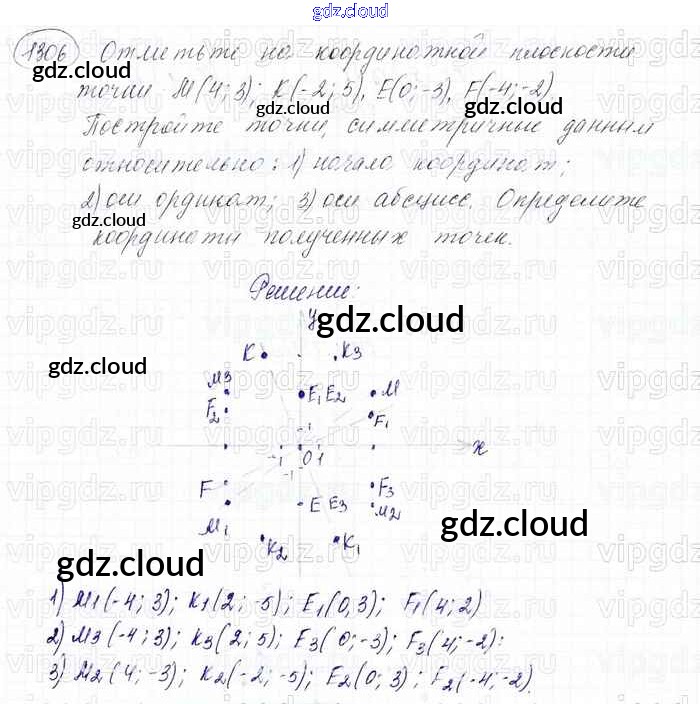 gdz.cloud
1306 Отметьте на координатной плоскости
gdz.cloud
точки М(4; 3); К(-2; 5), Е(0; -3), F(-4; -2)
gdz.cloud gdz.cloud
Постройте точки, симметричные данным
относительно: 1) начало координат;
2) оси ординат; 3) оси абсцисс. Определите
gdz.cloud
координаты полученных точек.
Решение:
y
gdz.cloud
K K3
gdz.cloud
M3 E1 E2 M
F2 F1
1
-1 0 1 x
-1
F E E3 F3
M1 M2
gdz.cloud
K2 K1
gdz.cloud
1) M1(-4; 3); K1(2; -5); E1(0,3); F1(4; 2)
2) M3(-4; 3); K3(2; 5); E3(0; -3); F3(4, -2):
3) M2(4; -3); K2(-2; -5); E2(0; 3); F2(-4; -2).
gdz.cloud
vipgdz.ru